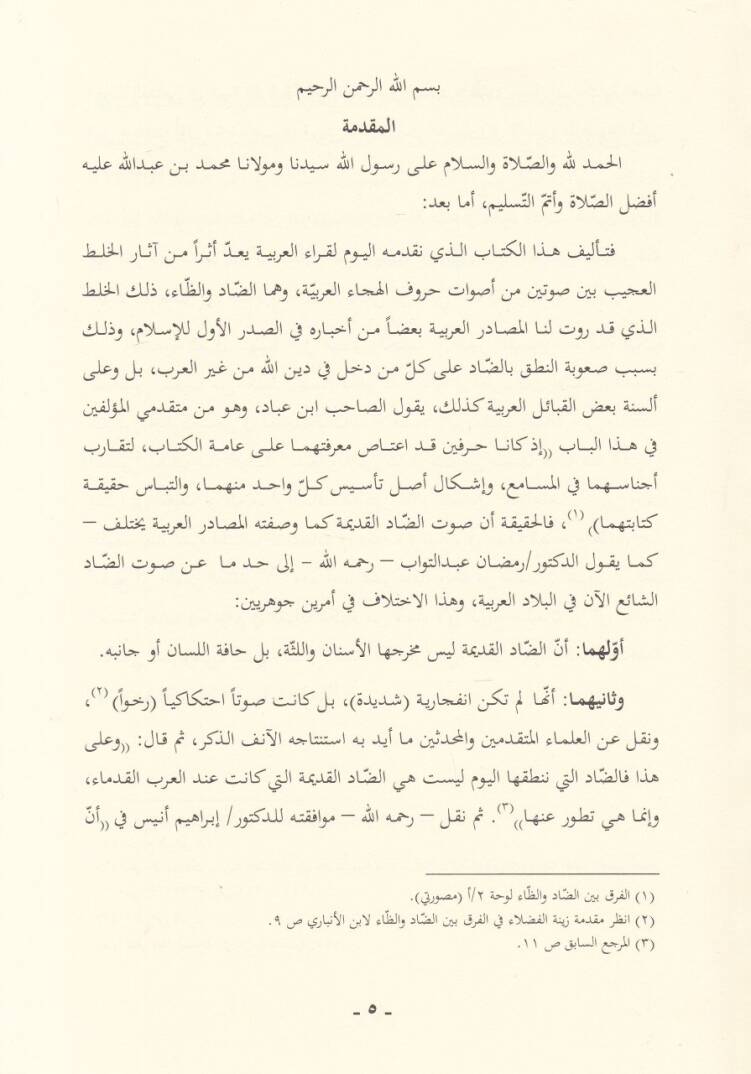 بسم الله الرحمن الرحيم
المقدمة
الحمد لله والصّلاة والسلام على رسول الله سيدنا ومولانا محمد بن عبدالله عليه
أفضل الصّلاة وأتمّ التّسليم، أما بعد:
فتأليف هذا الكتاب الذي نقدمه اليوم لقراء العربية يعدّ أثراً من آثار الخلط
العجيب بين صوتين من أصوات حروف الهجاء العربيّة، وهما الضّاد والظّاء، ذلك الخلط
الذي قد روت لنا المصادر العربية بعضاً من أخباره في الصدر الأول للإسلام، وذلك
بسبب صعوبة النطق بالضّاد على كلّ من دخل في دين الله من غير العرب، بل وعلى
ألسنة بعض القبائل العربية كذلك، يقول الصاحب ابن عباد، وهو من متقدمي المؤلفين
في هذا الباب ((إذ كانا حرفين قد اعتاص معرفتهما على عامة الكتاب، لتقارب
أجناسهما في المسامع، وإشكال أصل تأسيس كلّ واحد منهما، والتباس حقيقة
كتابتهما)) (١)، فالحقيقة أن صوت الضّاد القديمة كما وصفته المصادر العربية يختلف –
كما يقول الدكتور/رمضان عبدالتواب – رحمه الله - إلى حد ما عن صوت الضّاد
الشائع الآن في البلاد العربية، وهذا الاختلاف في أمرين جوهريين:
أوّلهما: أنّ الضّاد القديمة ليس مخرجها الأسنان واللثّة، بل حافة اللسان أو جانبه.
وثانيهما: أنّها لم تكن انفجارية (شديدة)، بل كانت صوتاً احتكاكياً (رخواً) (٢)،
ونقل عن العلماء المتقدمين والمحدثين ما أيد به استنتاجه الآنف الذكر، ثم قال: ((وعلى
هذا فالضّاد التي ننطقها اليوم ليست هي الضّاد القديمة التي كانت عند العرب القدماء،
وإنما هي تطور عنها))(٣). ثم نقل – رحمه الله – موافقته للدكتور/ إبراهيم أنيس في ((أنّ
(١) الفرق بين الضّاد والظّاء لوحة ٢/أ (مصورتي).
(٢) انظر مقدمة زينة الفضلاء في الفرق بين الضّاد والظّاء لابن الأنباري ص ٩.
(٣) المرجع السابق ص ١١.
- ٥ -